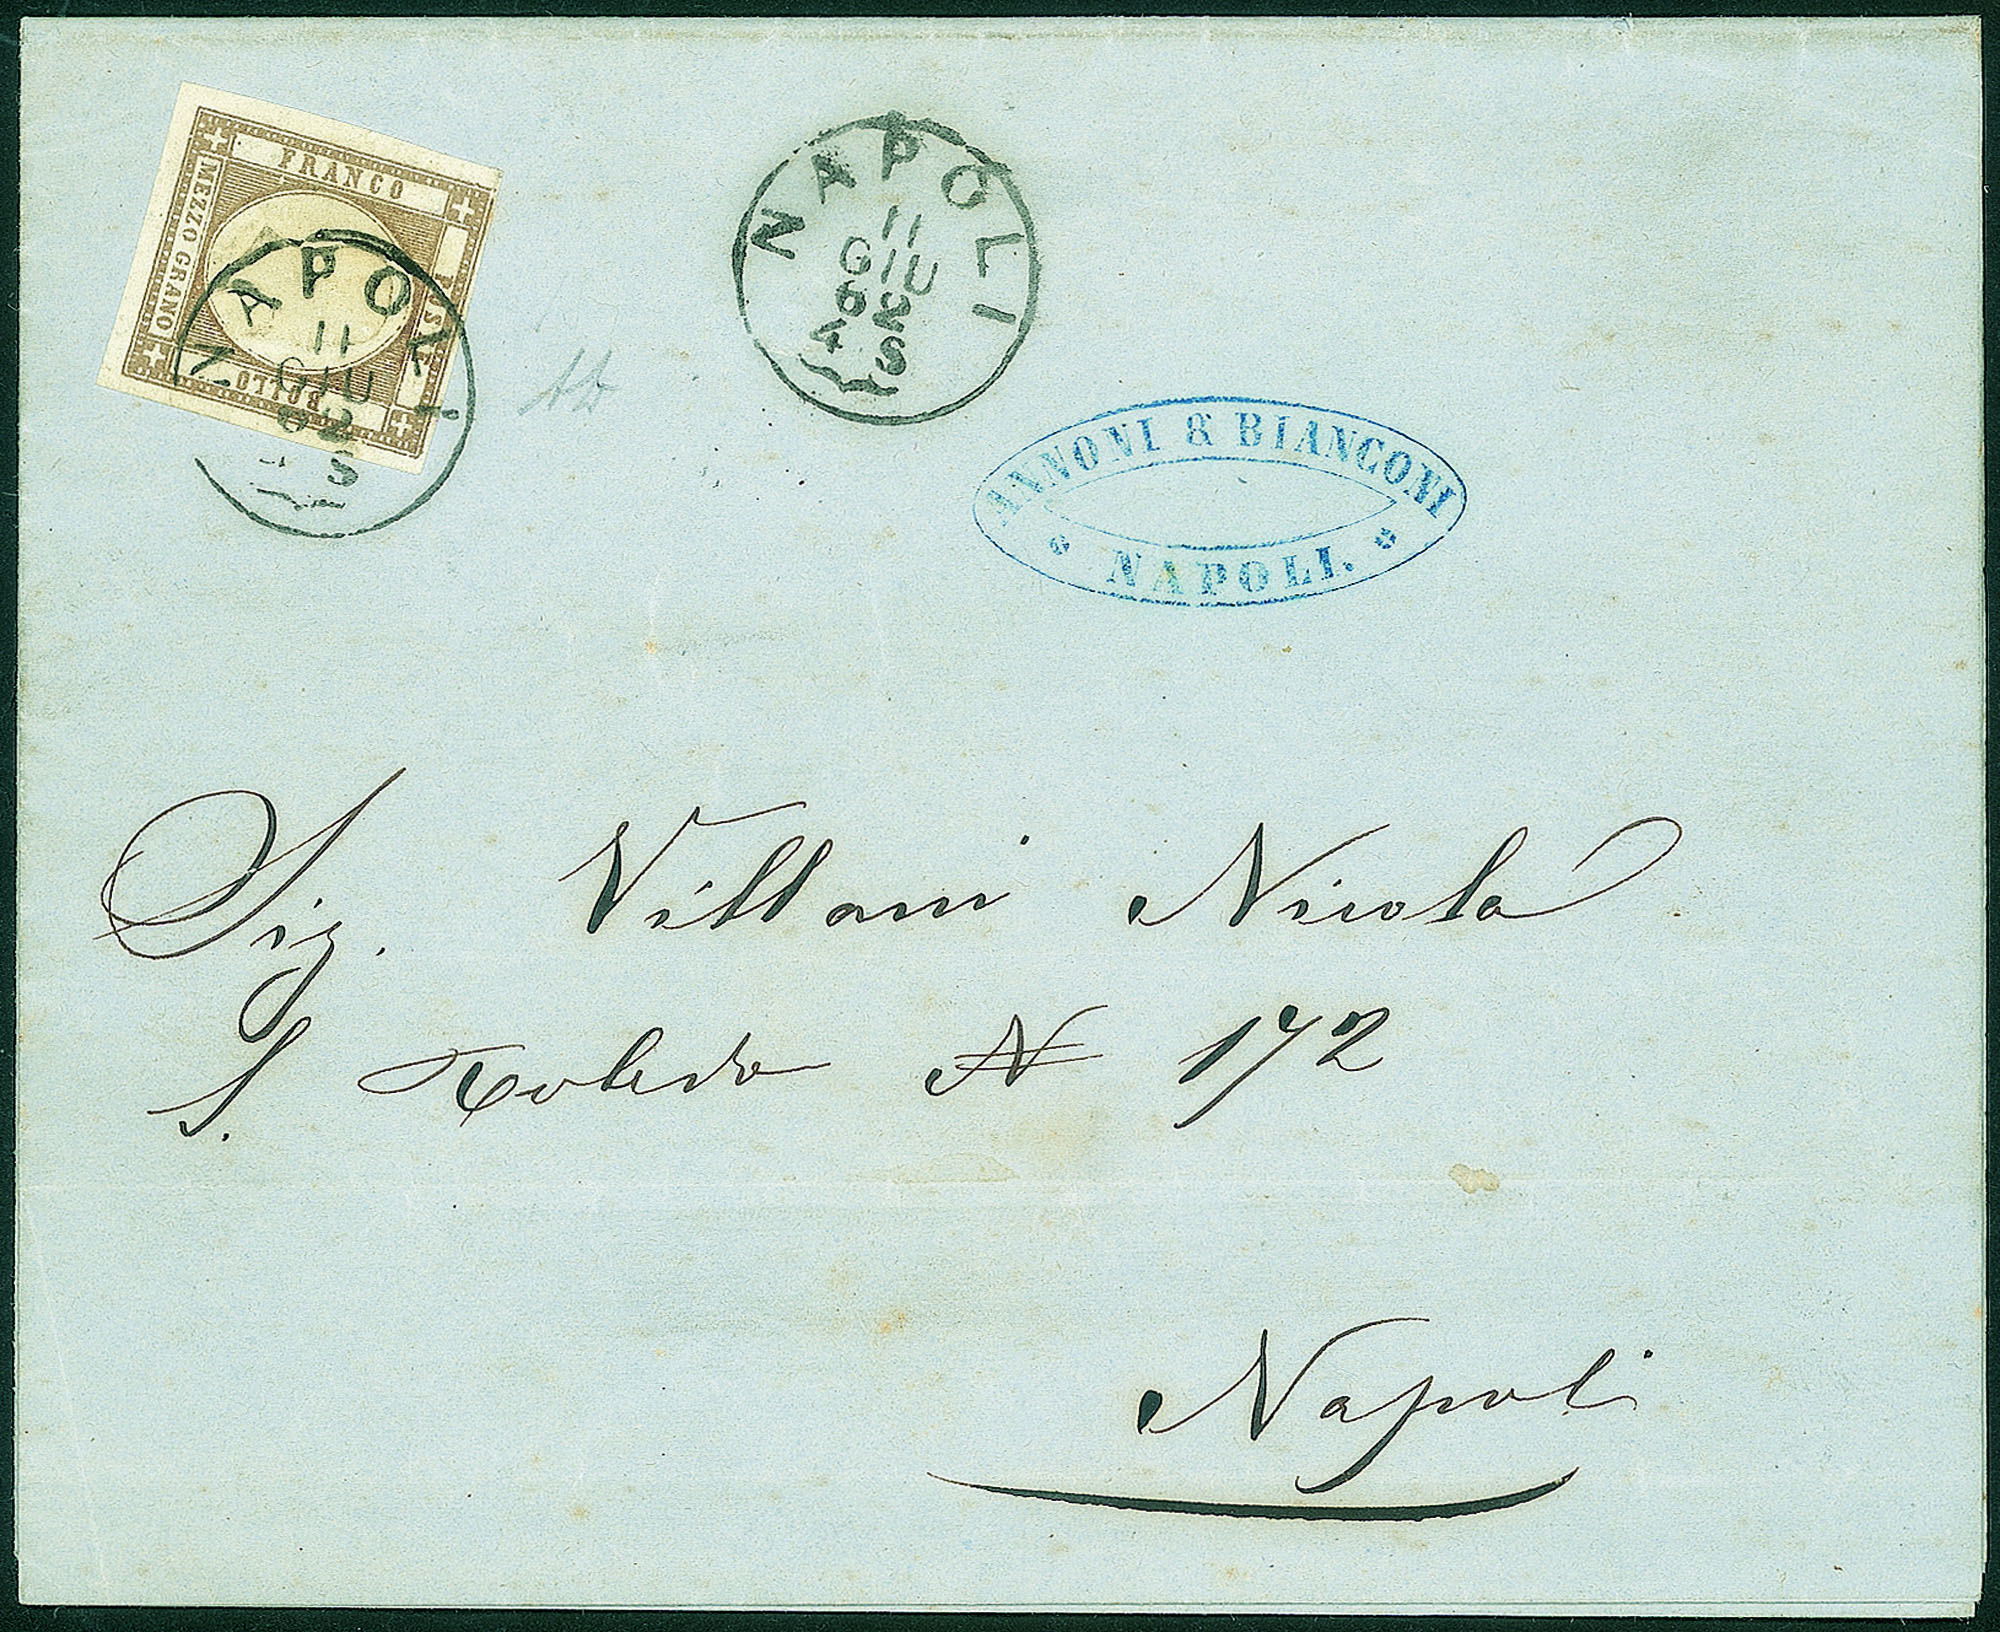 FRANCO
MEZZO GRANO
BOLLO
NAPOLI
11
GIU
62
S
NAPOLI
11
GIU
62
4 S
ANNONI & BIANCONI
NAPOLI.
Sig. Villani Nicola
S. Toledo N 172
Napoli